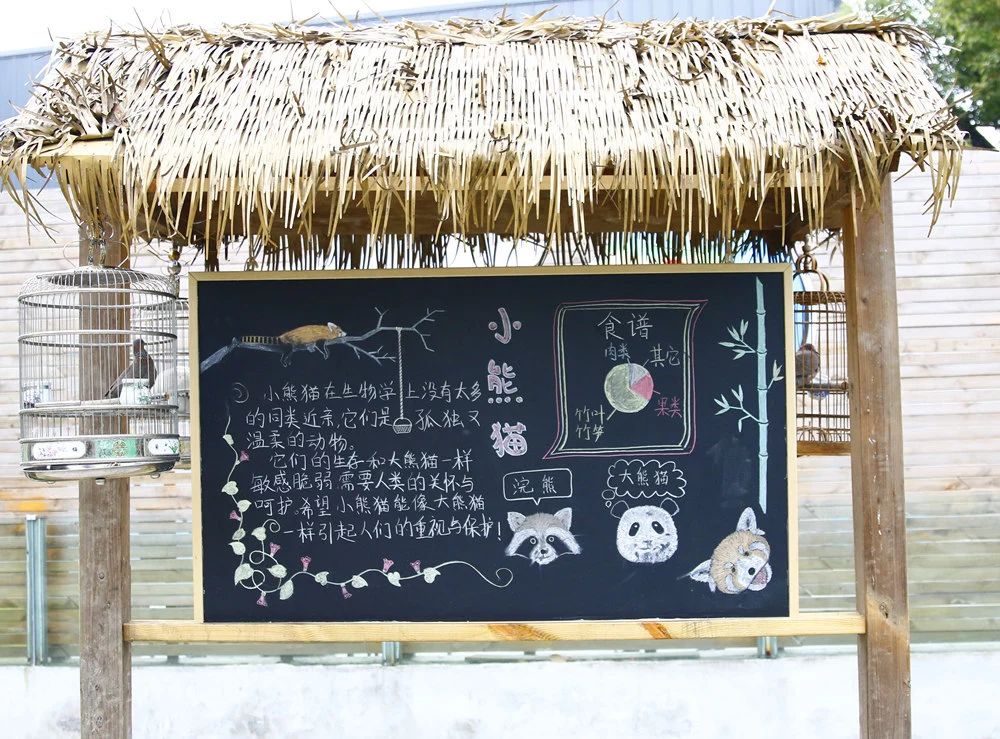 小熊猫在生物学上没有太多
的同类近亲,它们是孤独又
温柔的动物。
它们的生存和大熊猫一样
敏感脆弱,需要人类的关怀与
呵护。希望小熊猫能像大熊猫
一样引起人们的重视与保护!
小熊猫
食谱
肉类
其它
果类
竹叶
竹笋
浣熊
大熊猫